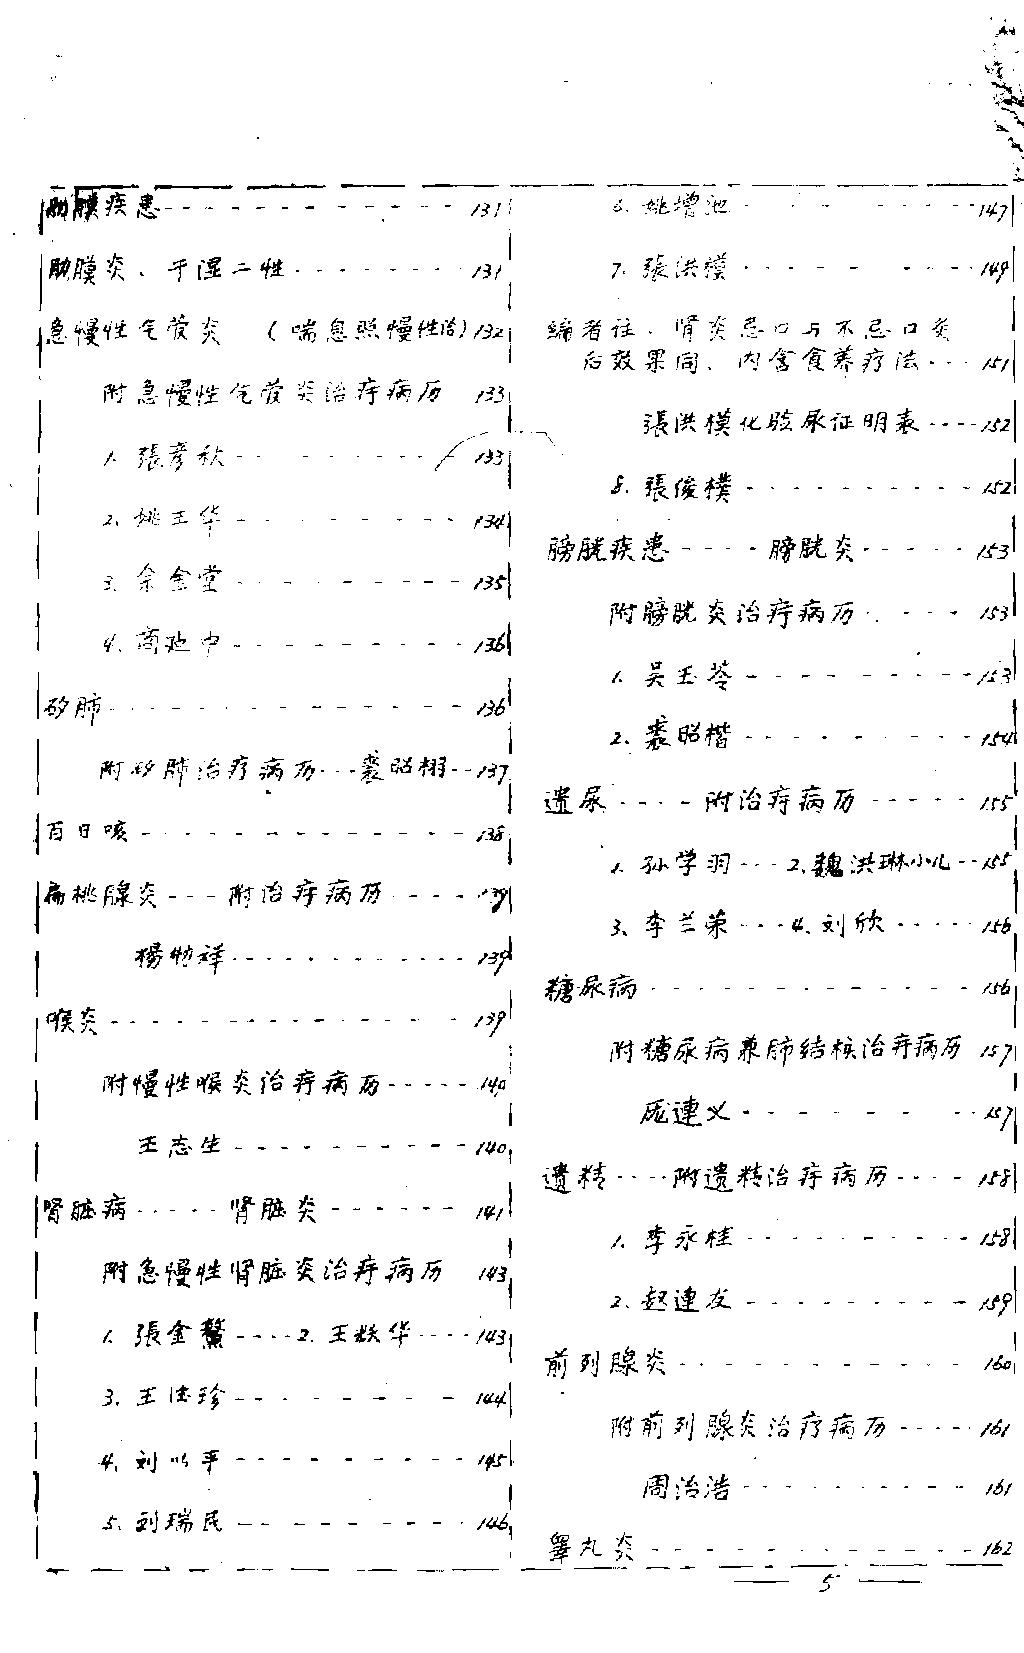 肋膜疾患---------131
肋膜炎、干湿二性--------131
急慢性气管炎 (喘息照慢性治)132
附急慢性气管炎治疗病历 133
1. 張彦秋---------133
2. 姚玉华---------134
3. 余金堂---------135
4. 商延中---------136
矽肺------------136
附矽肺治疗病历---裘昭栩--137
百日咳-----------138
扁桃腺炎---附治疗病历-----139
楊 祥---------139
喉炎------------139
附慢性喉炎治疗病历-----140
王志生---------140
肾脏病-----肾脏炎------141
附急慢性肾脏炎治疗病历 143
1. 張金鰲----2. 王 华----143
3. 王 珍---------144
4. 刘以平---------145
5. 刘瑞民---------146
6. 姚增池---------147
7. 張洪模---------149
编者注、肾炎忌口与不忌口灸
后效果同、内含食养疗法---151
張洪模化验尿证明表----152
8. 張俊樸---------152
膀胱疾患----膀胱炎-----153
附膀胱炎治疗病历-----153
1. 吴玉苓---------153
2. 裘昭楷---------154
遗尿----附治疗病历-----155
1. 孙学羽---2. 魏洪琳小儿--155
3. 李兰荣---4. 刘欣-----156
糖尿病-----------156
附糖尿病兼肺结核治疗病历 157
庞連义---------157
遗精----附遗精治疗病历----158
1. 李永桂---------158
2. 赵連友---------159
前列腺炎----------160
附前列腺炎治疗病历-----161
周治浩---------161
睾丸炎-----------162
5